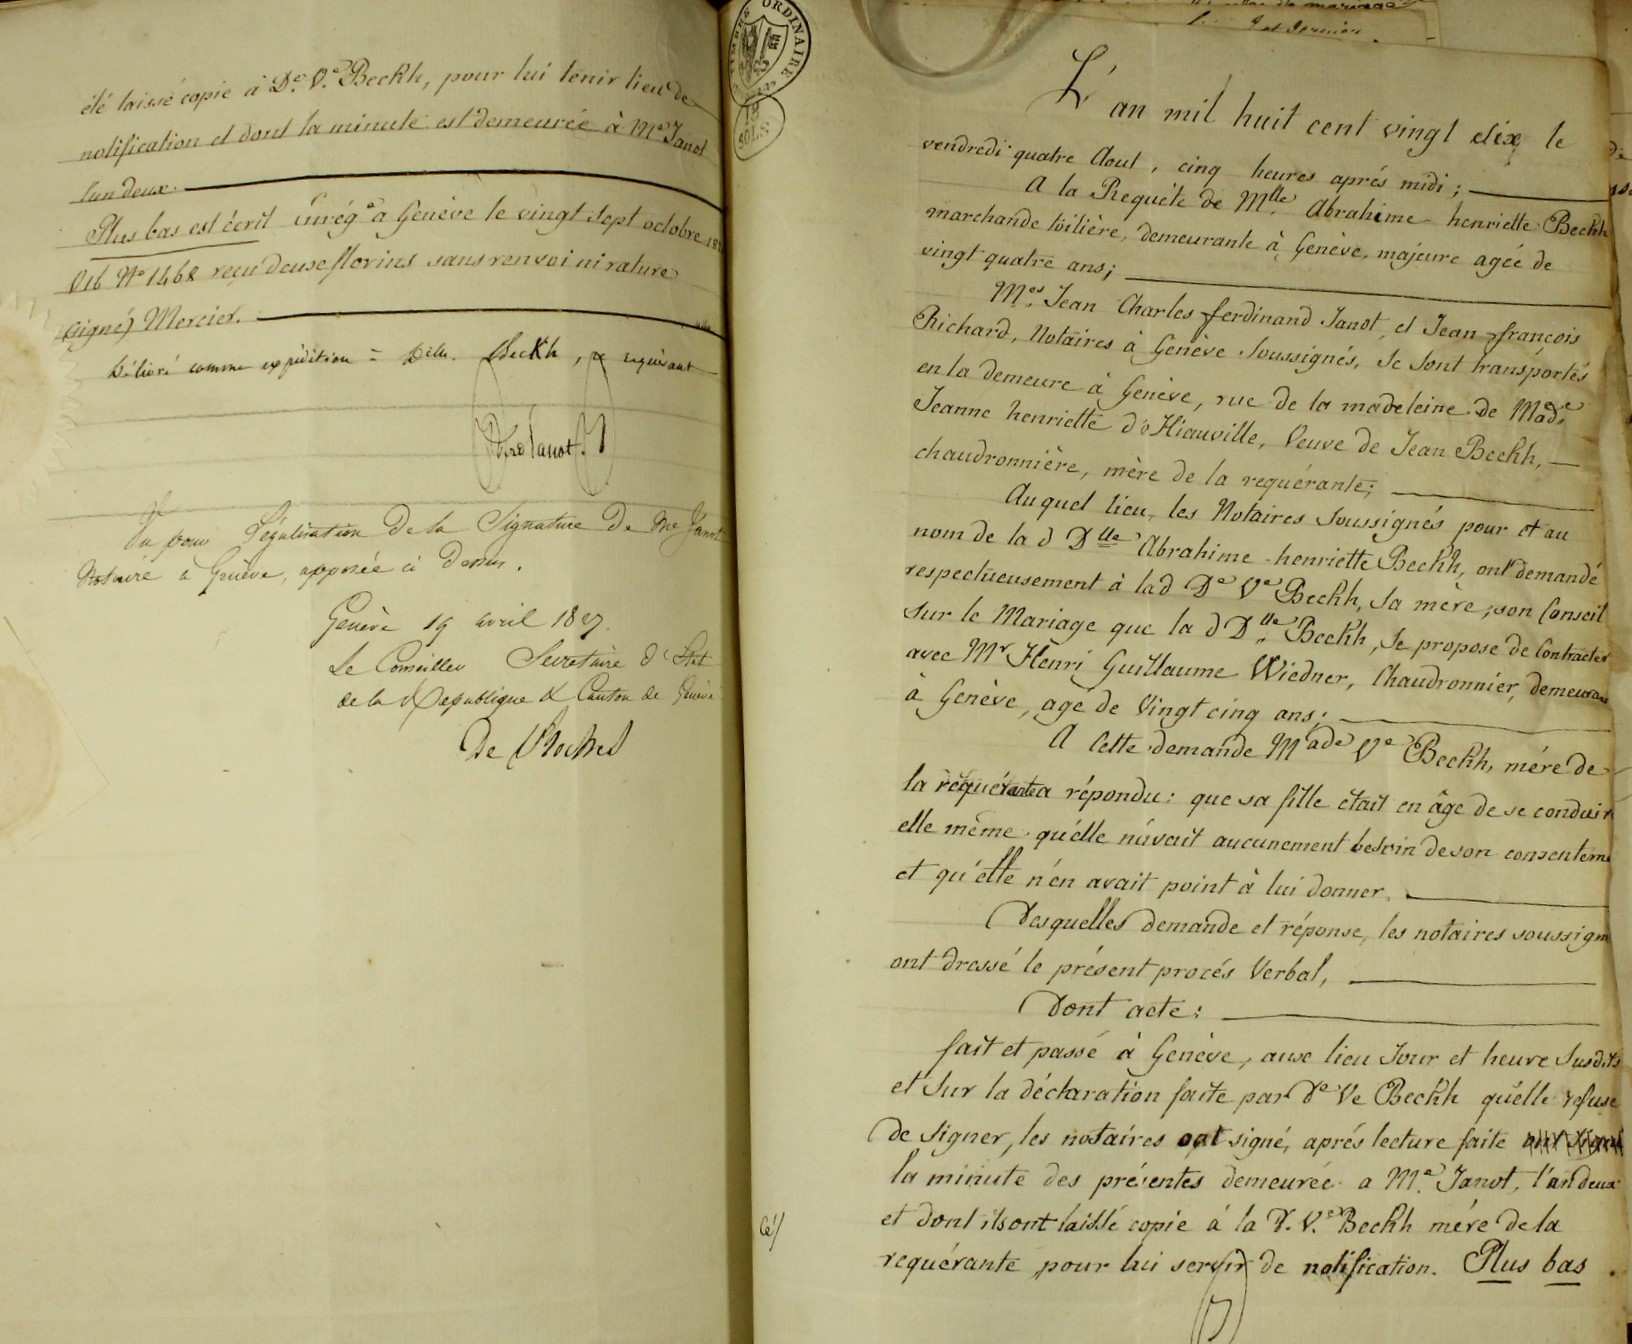 été laissé copie à De. Ve. Beckh, pour lui tenir lieu de
notification et dont la minute est demeurée à Me Janot
l'un deux.
Plus bas est écrit Enrég.é a Genève le vingt sept octobre 182
V16 No 1468 reçu deux florins sans renvoi ni rature
(signé) Mercier.
Délivré comme expédition = Delle. Beckh, requérant
Janot.
Vu pour Légalisation De la Signature De Me Janot
Notaire a Genève, apposée ci Dessus.
Genève 19 avril 1827.
Le Conseiller Secretaire d'Etat
de la République & Canton de Genève
De Roches
ORDINAIRE
18
SOLS
L'an mil huit cent vingt six le
vendredi quatre Aout, cinq heures aprés midi;
A la Requête de Mlle Abrahime henriette Beckh
marchande toilière, demeurante à Genève, majeure agée de
vingt quatre ans;
Mes Jean Charles ferdinand Janot, et Jean françois
Richard, Notaires à Genève soussignés, se sont transportés
en la demeure à Genève, rue de la madeleine de Made
Jeanne henriette d'Hiauville, Veuve de Jean Beckh,
chaudronnière, mère de la requérante;
Auquel lieu, les Notaires soussignés pour et au
nom de la d Dlle Abrahime henriette Beckh, ont demandé
respectueusement à la d De Ve Beckh, sa mère, son Conseil
sur le Mariage que la d Dlle Beckh, se propose de Contracter
avec Mr Henri Guillaume Wiedner, Chaudronnier, demeurant
à Genève, agé de Vingt cinq ans;
A Cette demande Made Ve Beckh, mére de
la requérante a répondu: que sa fille était en âge de se conduir
elle même qu'elle n'avait aucunement besoin de son consentem
et qu'elle n'en avait point à lui donner.
Desquelles demande et réponse, les notaires soussign
ont dressé le présent procés Verbal,
Dont acte:
fait et passé à Genève, aux lieu Jour et heure susdits
et sur la déclaration faite par De Ve Beckh qu'elle refuse
de signer, les notaires ont signé, aprés lecture faite
la minute des présentes demeurée a Me. Janot, l'un deux
et dont ils ont laissé copie à la D. Ve. Beckh mére de la
requérante pour lui servir de notification. Plus bas